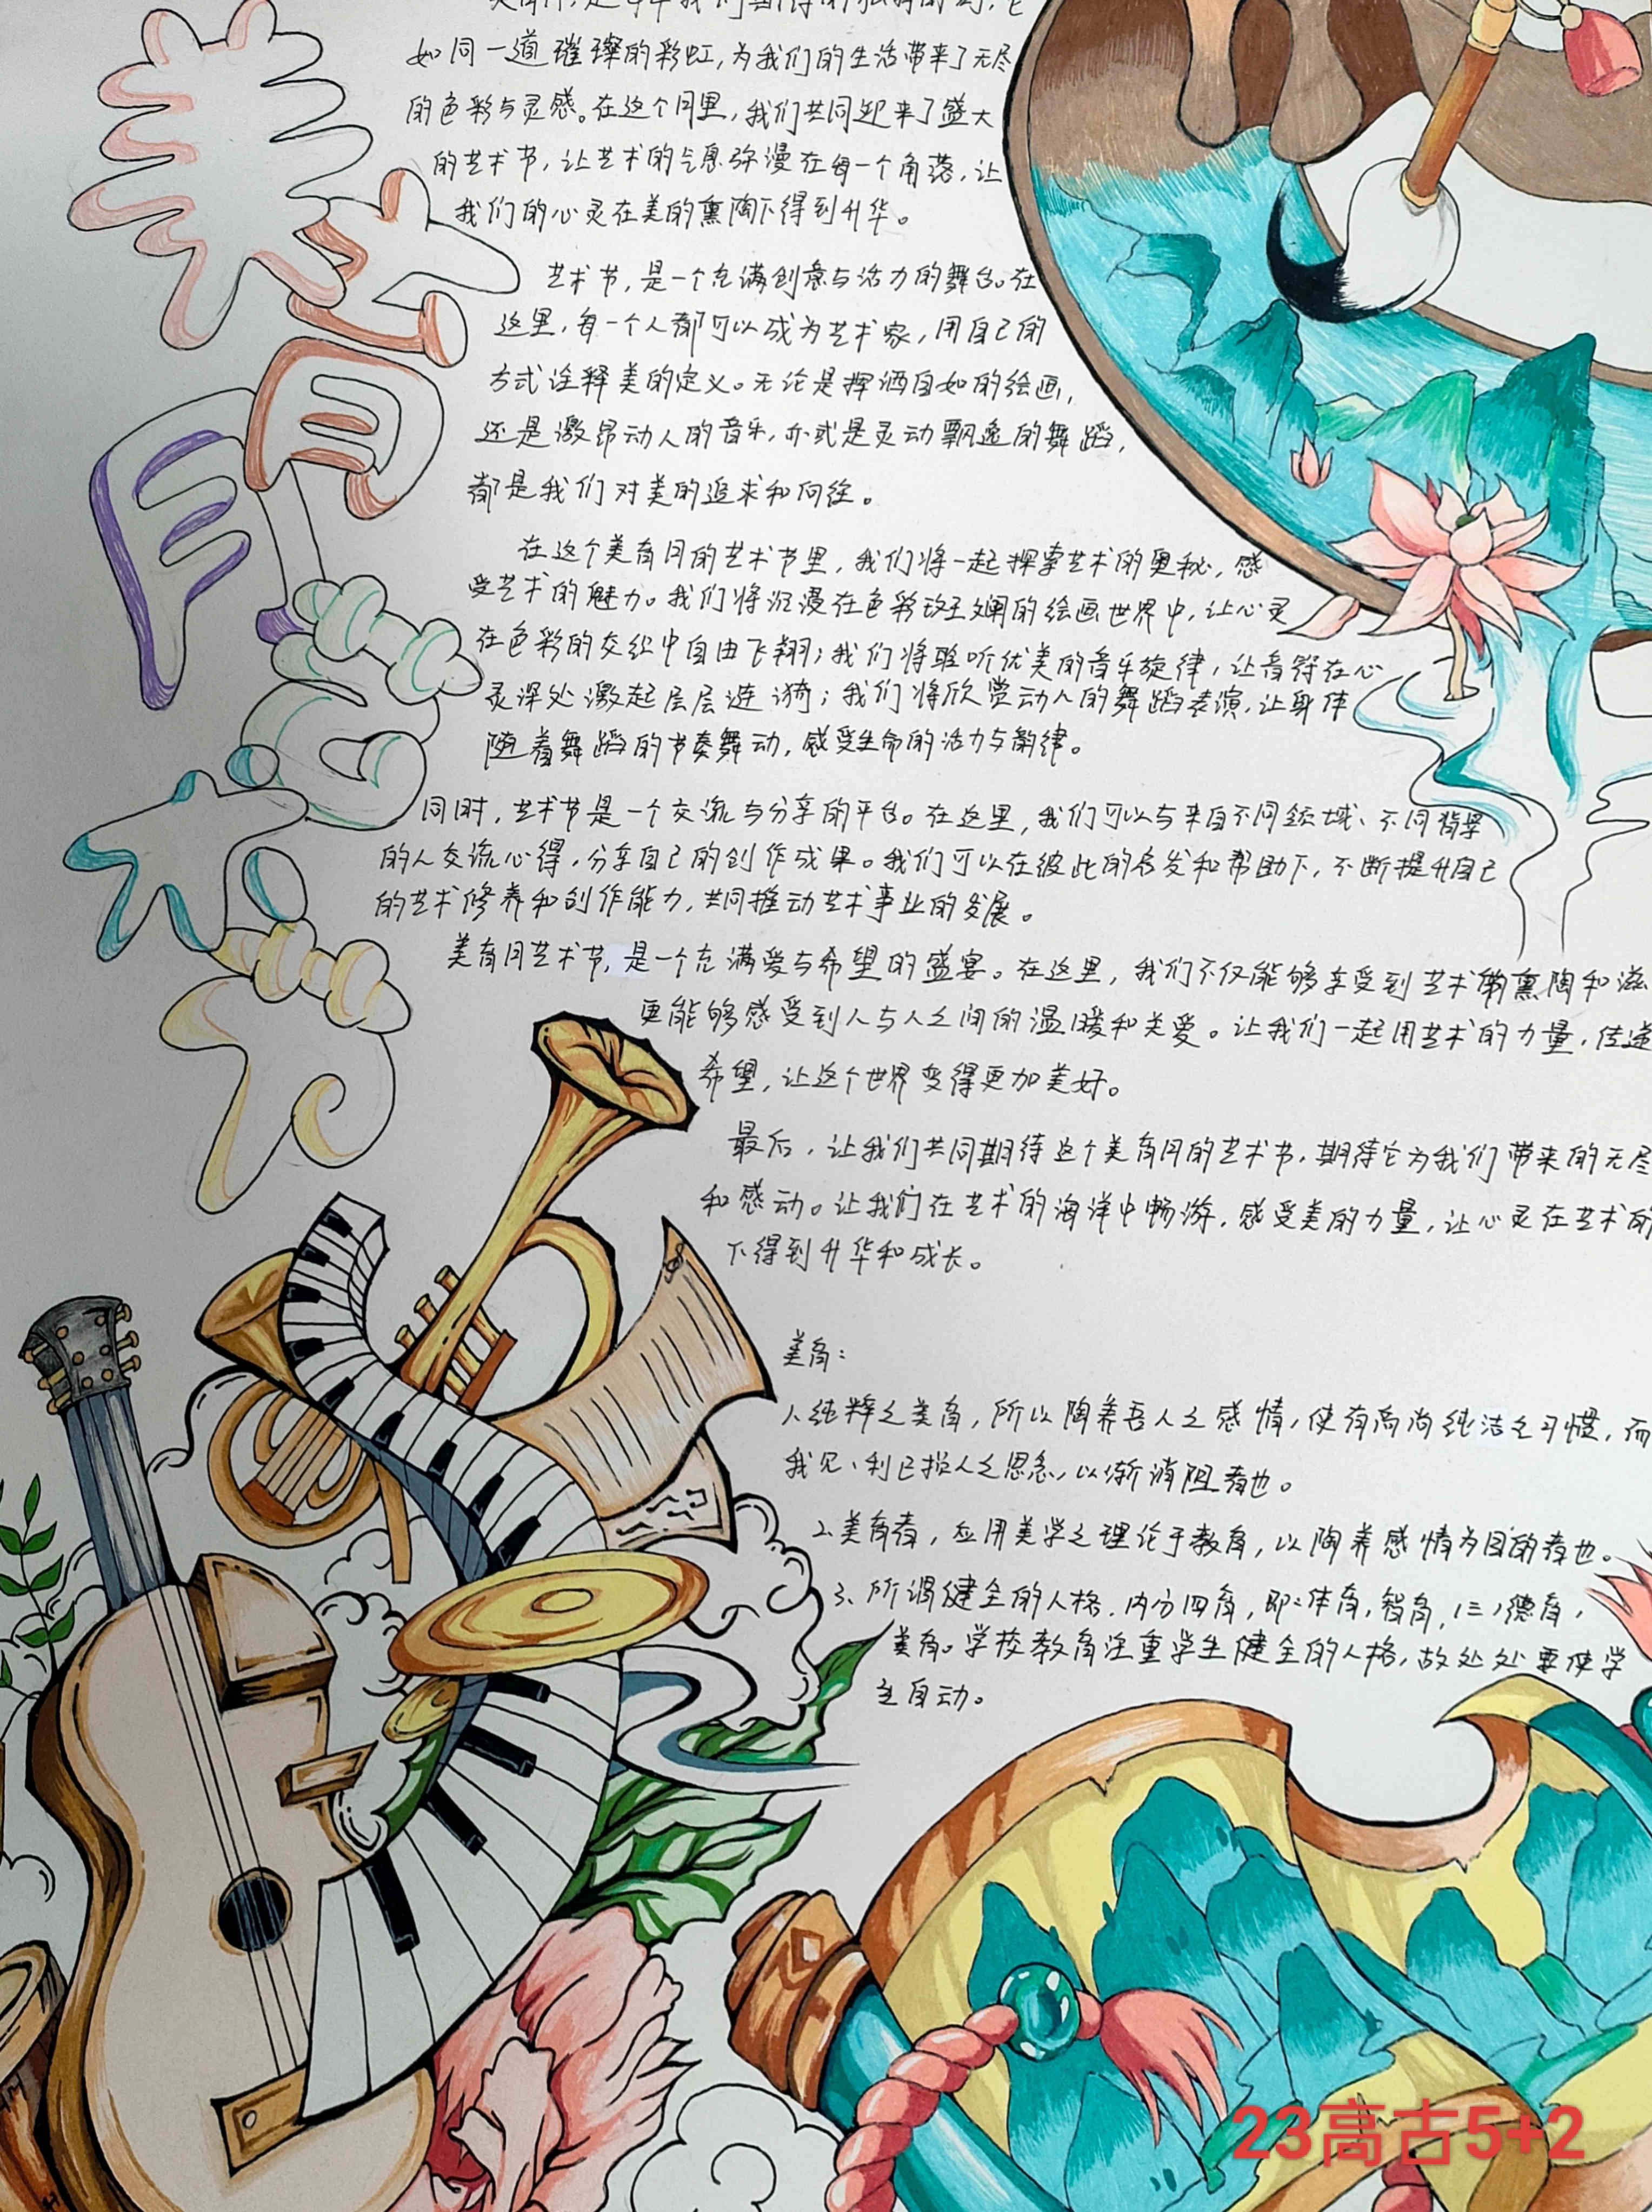 美育月艺术节
如同一道璀璨的彩虹,为我们的生活带来了无尽
的色彩与灵感。在这个月里,我们共同迎来了盛大
的艺术节,让艺术的气息弥漫在每一个角落,让
我们的心灵在美的熏陶下得到升华。
艺术节,是一个充满创意与活力的舞台。在
这里,每一个人都可以成为艺术家,用自己的
方式诠释美的定义。无论是挥洒自如的绘画,
还是激昂动人的音乐,亦或是灵动飘逸的舞蹈,
都是我们对美的追求和向往。
在这个美育月的艺术节里,我们将一起探索艺术的奥秘,感
受艺术的魅力。我们将沉浸在色彩斑斓的绘画世界中,让心灵
在色彩的交织中自由飞翔;我们将聆听优美的音乐旋律,让音符在心
灵深处激起层层涟漪;我们将欣赏动人的舞蹈表演,让身体
随着舞蹈的节奏舞动,感受生命的活力与韵律。
同时,艺术节是一个交流与分享的平台。在这里,我们可以与来自不同领域、不同背景
的人交流心得,分享自己的创作成果。我们可以在彼此的启发和帮助下,不断提升自己
的艺术修养和创作能力,共同推动艺术事业的发展。
美育月艺术节,是一个充满爱与希望的盛宴。在这里,我们不仅能够享受到艺术带熏陶和滋
更能够感受到人与人之间的温暖和关爱。让我们一起用艺术的力量,传递
希望,让这个世界变得更加美好。
最后,让我们共同期待这个美育月的艺术节,期待它为我们带来的无尽
和感动。让我们在艺术的海洋中畅游,感受美的力量,让心灵在艺术的
下得到升华和成长。
美育:
1、纯粹之美育,所以陶养吾人之感情,使有高尚纯洁之习惯,而
我见、利己损人之思念,以渐消阻者也。
2、美育者,应用美学之理论于教育,以陶养感情为目的者也。
3、所谓健全的人格,内分四育,即:体育,智育,(三)德育,
美育。学校教育注重学生健全的人格,故处处要使学
生自动。
23高古5+2